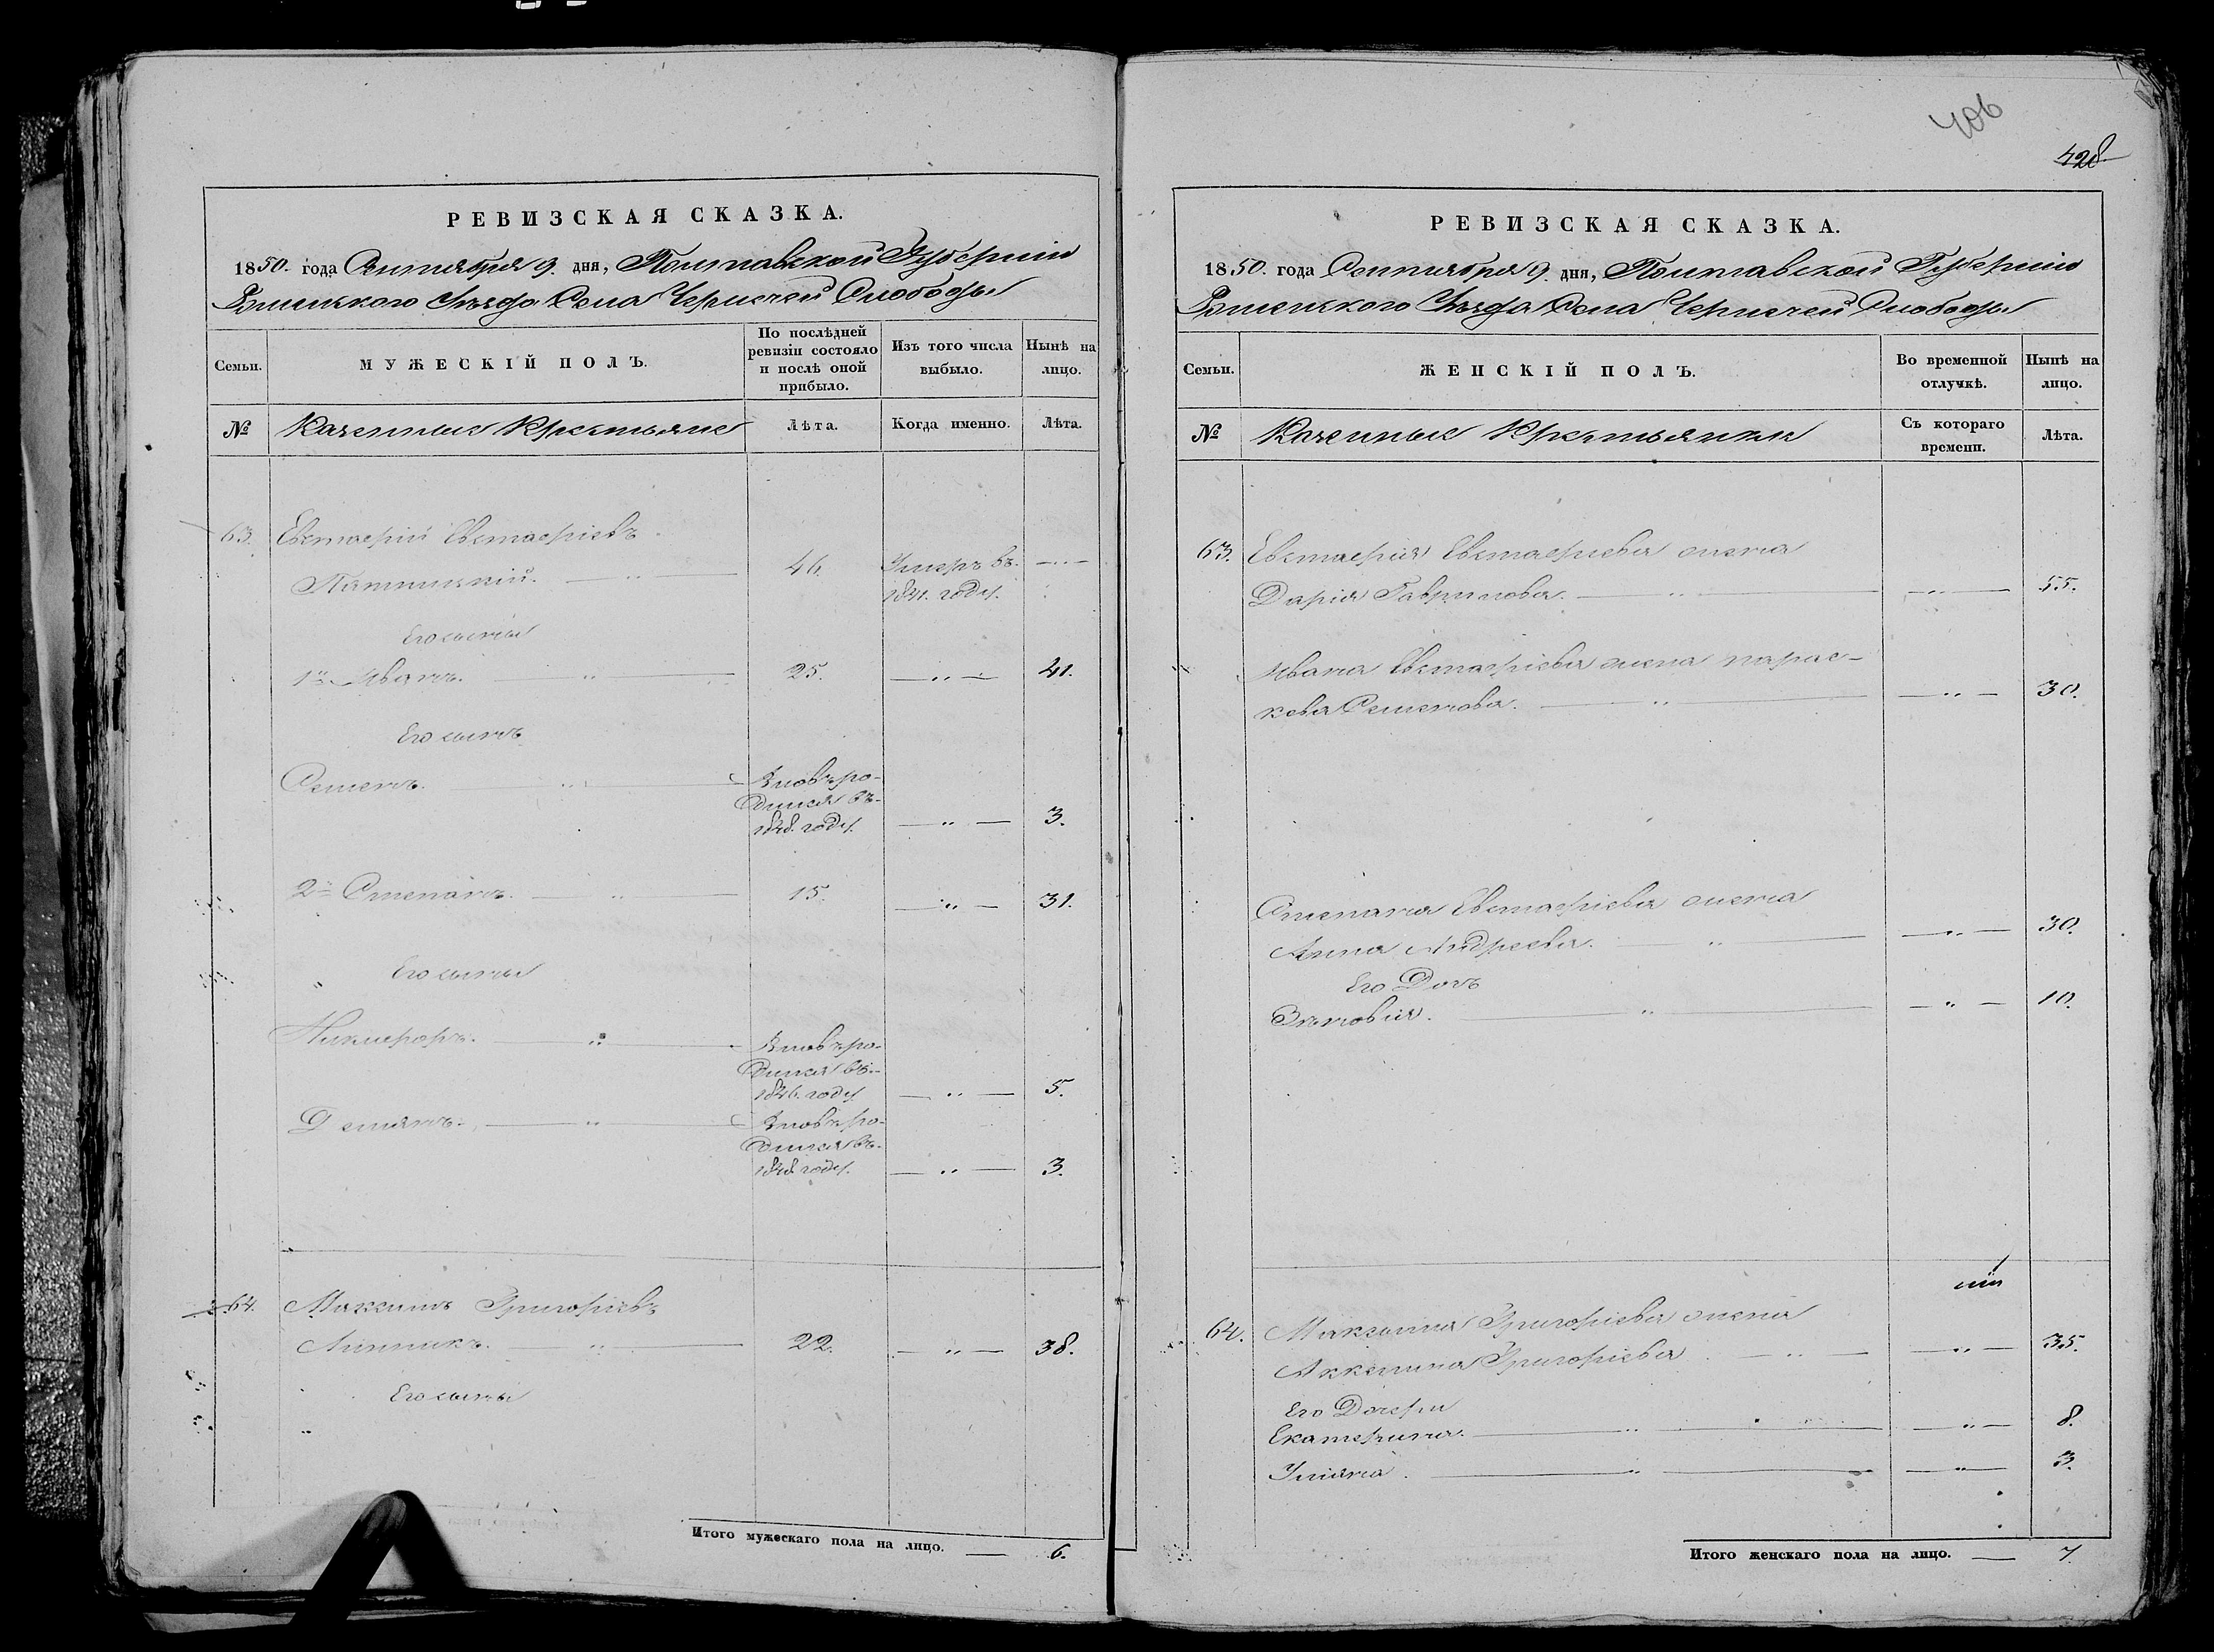 РЕВИЗСКАЯ СКАЗКА.
1850. года Сентября 9. дня, Полтавской Губерніи
Роменского Уѣзда Села Чернечей Слободы
Семьи.
МУЖЕСКІЙ ПОЛЪ.
По послѣдней ревизіи состояло и послѣ оной прибыло.
Изъ того числа выбыло.
Нынѣ на лицо.
№
Казенные Крестьяне
Лѣта.
Когда именно.
Лѣта.
63. Евстафій Евстафіевъ
46. Умеръ въ
1841. году.
Его сыны
1й Иванъ. 25. 41.
Его сынъ
Семенъ. Вновь ро-
дился въ
1848. году. 3.
2й Степанъ. 15. 31.
Его сыны
Никифоръ. Вновь ро-
дился въ
1846. году 5.
Демянъ. Вновь ро-
дился въ
1848 году. 3.
64. Максимъ Григорьевъ
Линникъ. 22. 38.
Его сыны
Итого мужескаго пола на лицо. 6.
406
428
РЕВИЗСКАЯ СКАЗКА.
1850. года Сентября 9. дня, Полтавской Губерніи
Роменского Уѣзда Села Чернечей Слободы
Семьи.
ЖЕНСКІЙ ПОЛЪ.
Во временной отлучкѣ.
Нынѣ на лицо.
№
Казенные Крестьянки
Съ котораго времени.
Лѣта.
63. Евстафія Евстафіева жена
Дарія Гаврилова. 55.
Ивана Евстафіева жена парас-
кева Семенова. 30.
Степана Евстафіева жена
Анна Андреева. 30.
Его Дочь
Зѣновія. 10.
64. Максима Григорьева жена
Аккилина Григорьева 35.
Его Дочери
Екатерина. 8.
Уліяна. 3.
Итого женскаго пола на лицо. 7.